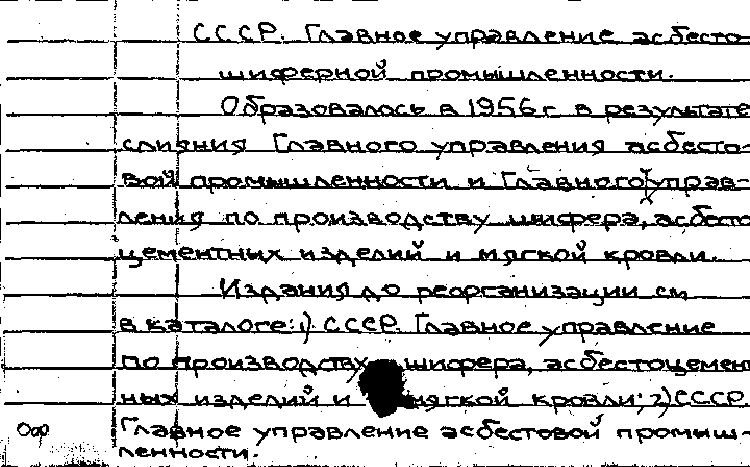 СССР. Главное управление асбесто-
шиферной промышленности.
Образовалось в 1956 г. в результате
слияния Главного управления асбесто-
вой промышленности и Главного управ-
ления по производству шифера, асбесто
цементных изделий и мягкой кровли.
Издания до реорганизации см
в каталоге: 1) СССР. Главное управление
по производству шифера, асбестоцемент
ных изделий и мягкой кровли; 2) СССР.
Главное управление асбестовой промыш-
ленности.